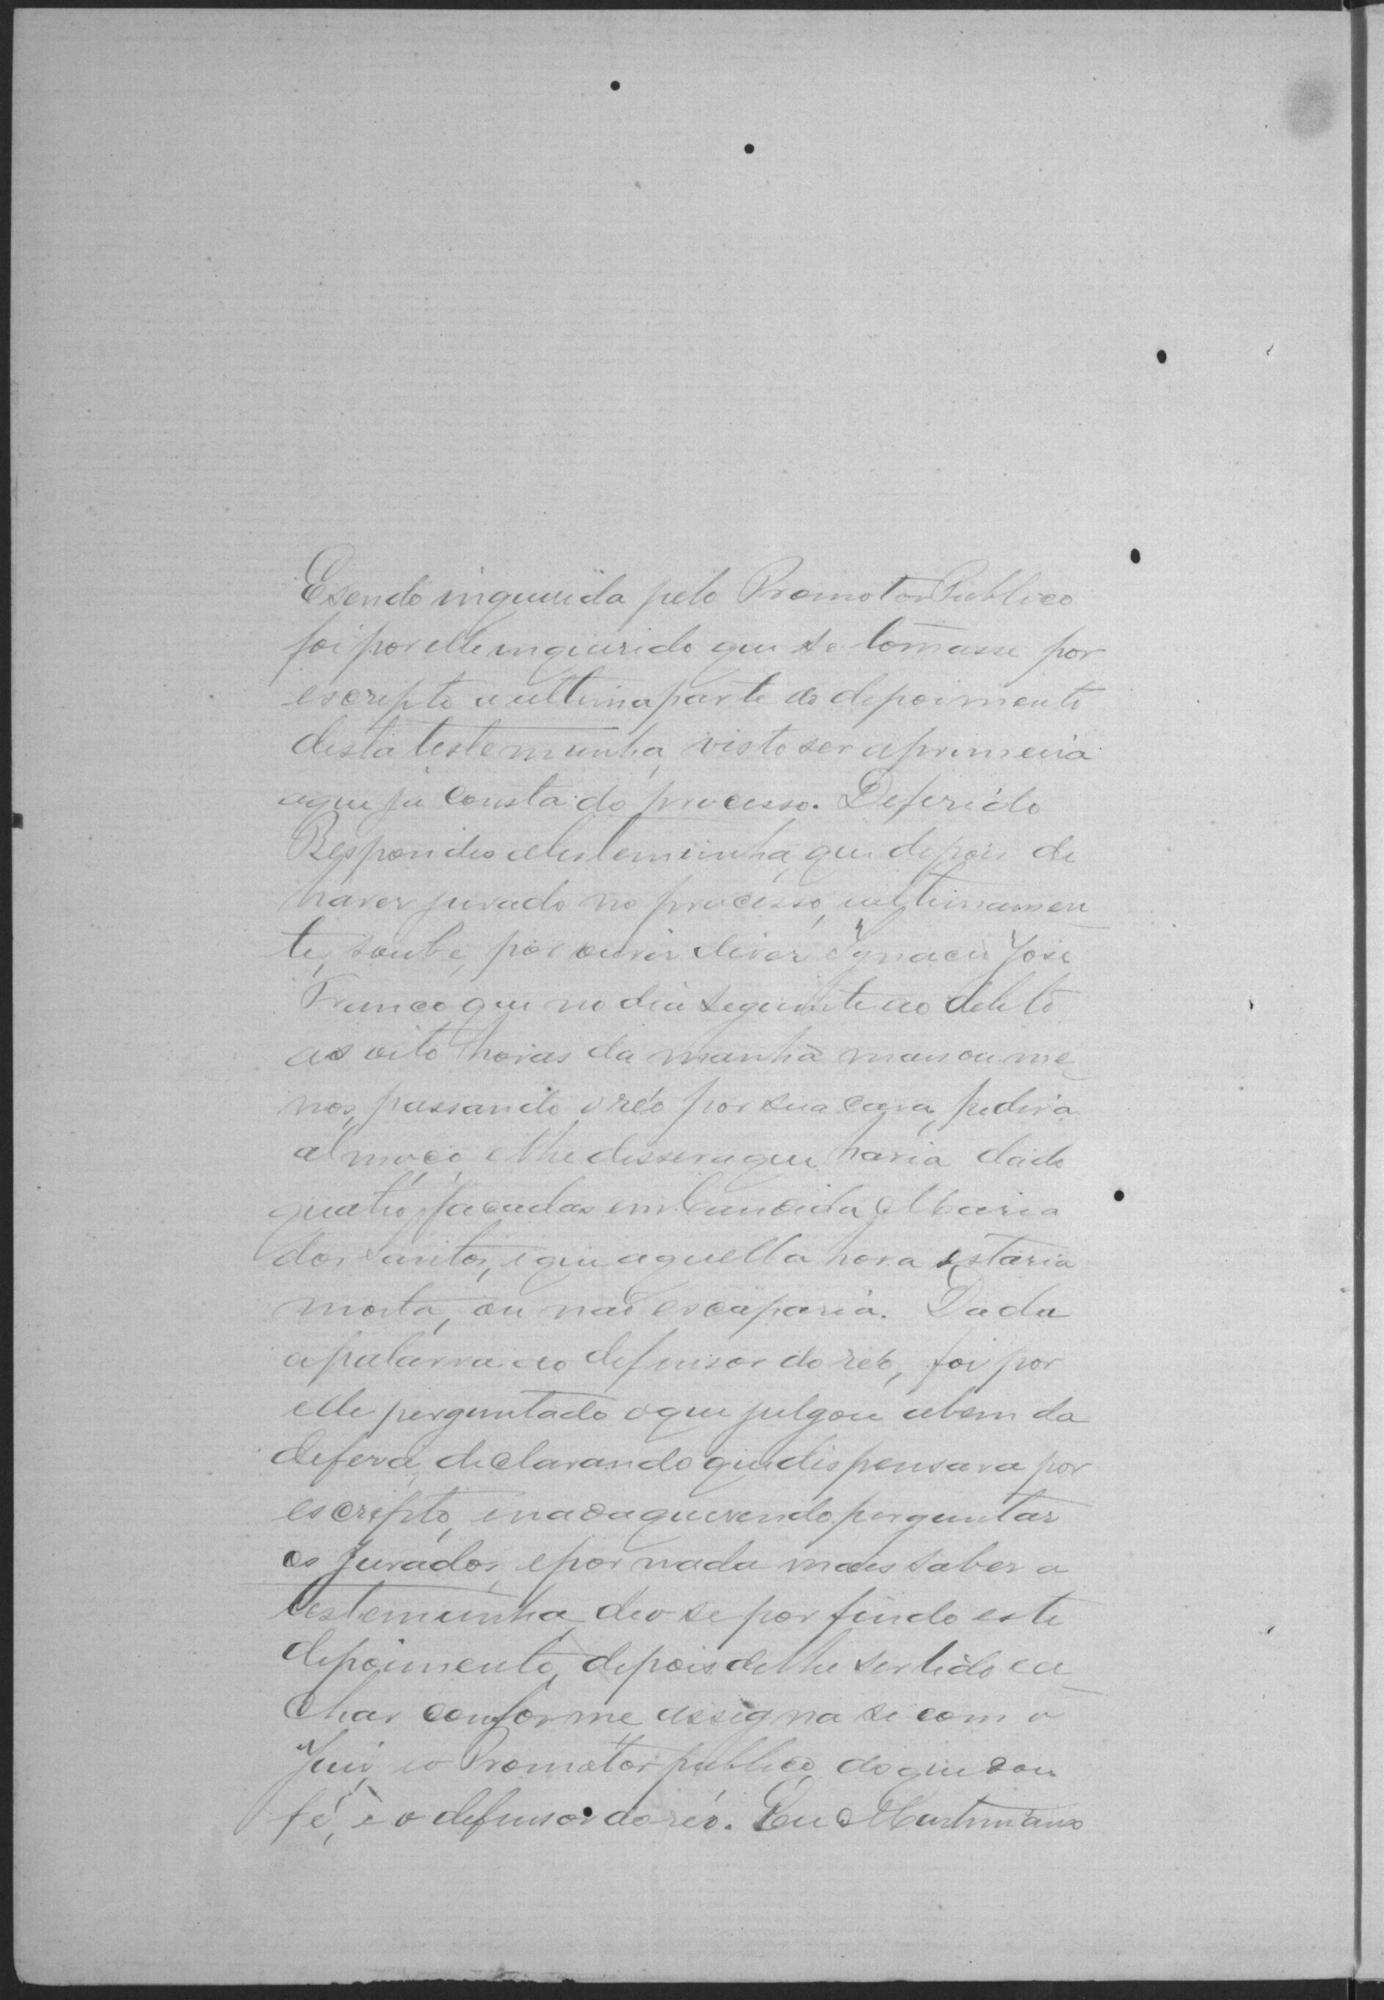 E sendo inquirida pelo Promotor Publico
foi por elle inquirido que se tomasse por
escripto a ultima parte do depoimento
desta testemunha, visto ser a primeira
a que já consta do processo. Deferido
Respondeo a testemunha, que depois de
haver jurado no processo, ultimamen
te, soube, por ouvir dizer Ignacio José
Franco que no dia seguinte ao delicto
as oito horas da manhã mais ou me
nos, passando o réo por sua casa, pedira
almoço, e lhe dissera que havia dado
quatro facadas em Candida Maria
dos Santos, e que aquella hora estaria
morta, ou não escaparia. Dada
a palavra ao defensor do réo, foi por
elle perguntado o que julgou a bem da
defeza, declarando que dispensava por
escripto, e nada querendo perguntar
os jurados, e por nada mais saber a
testemunha, deo se por findo este
depoimento, depois de lhe ser lido e a
char conforme assigna se com o
Juiz, e o Promotor publico, do que dou
fé, e o defensor do réo. Eu Martiniano